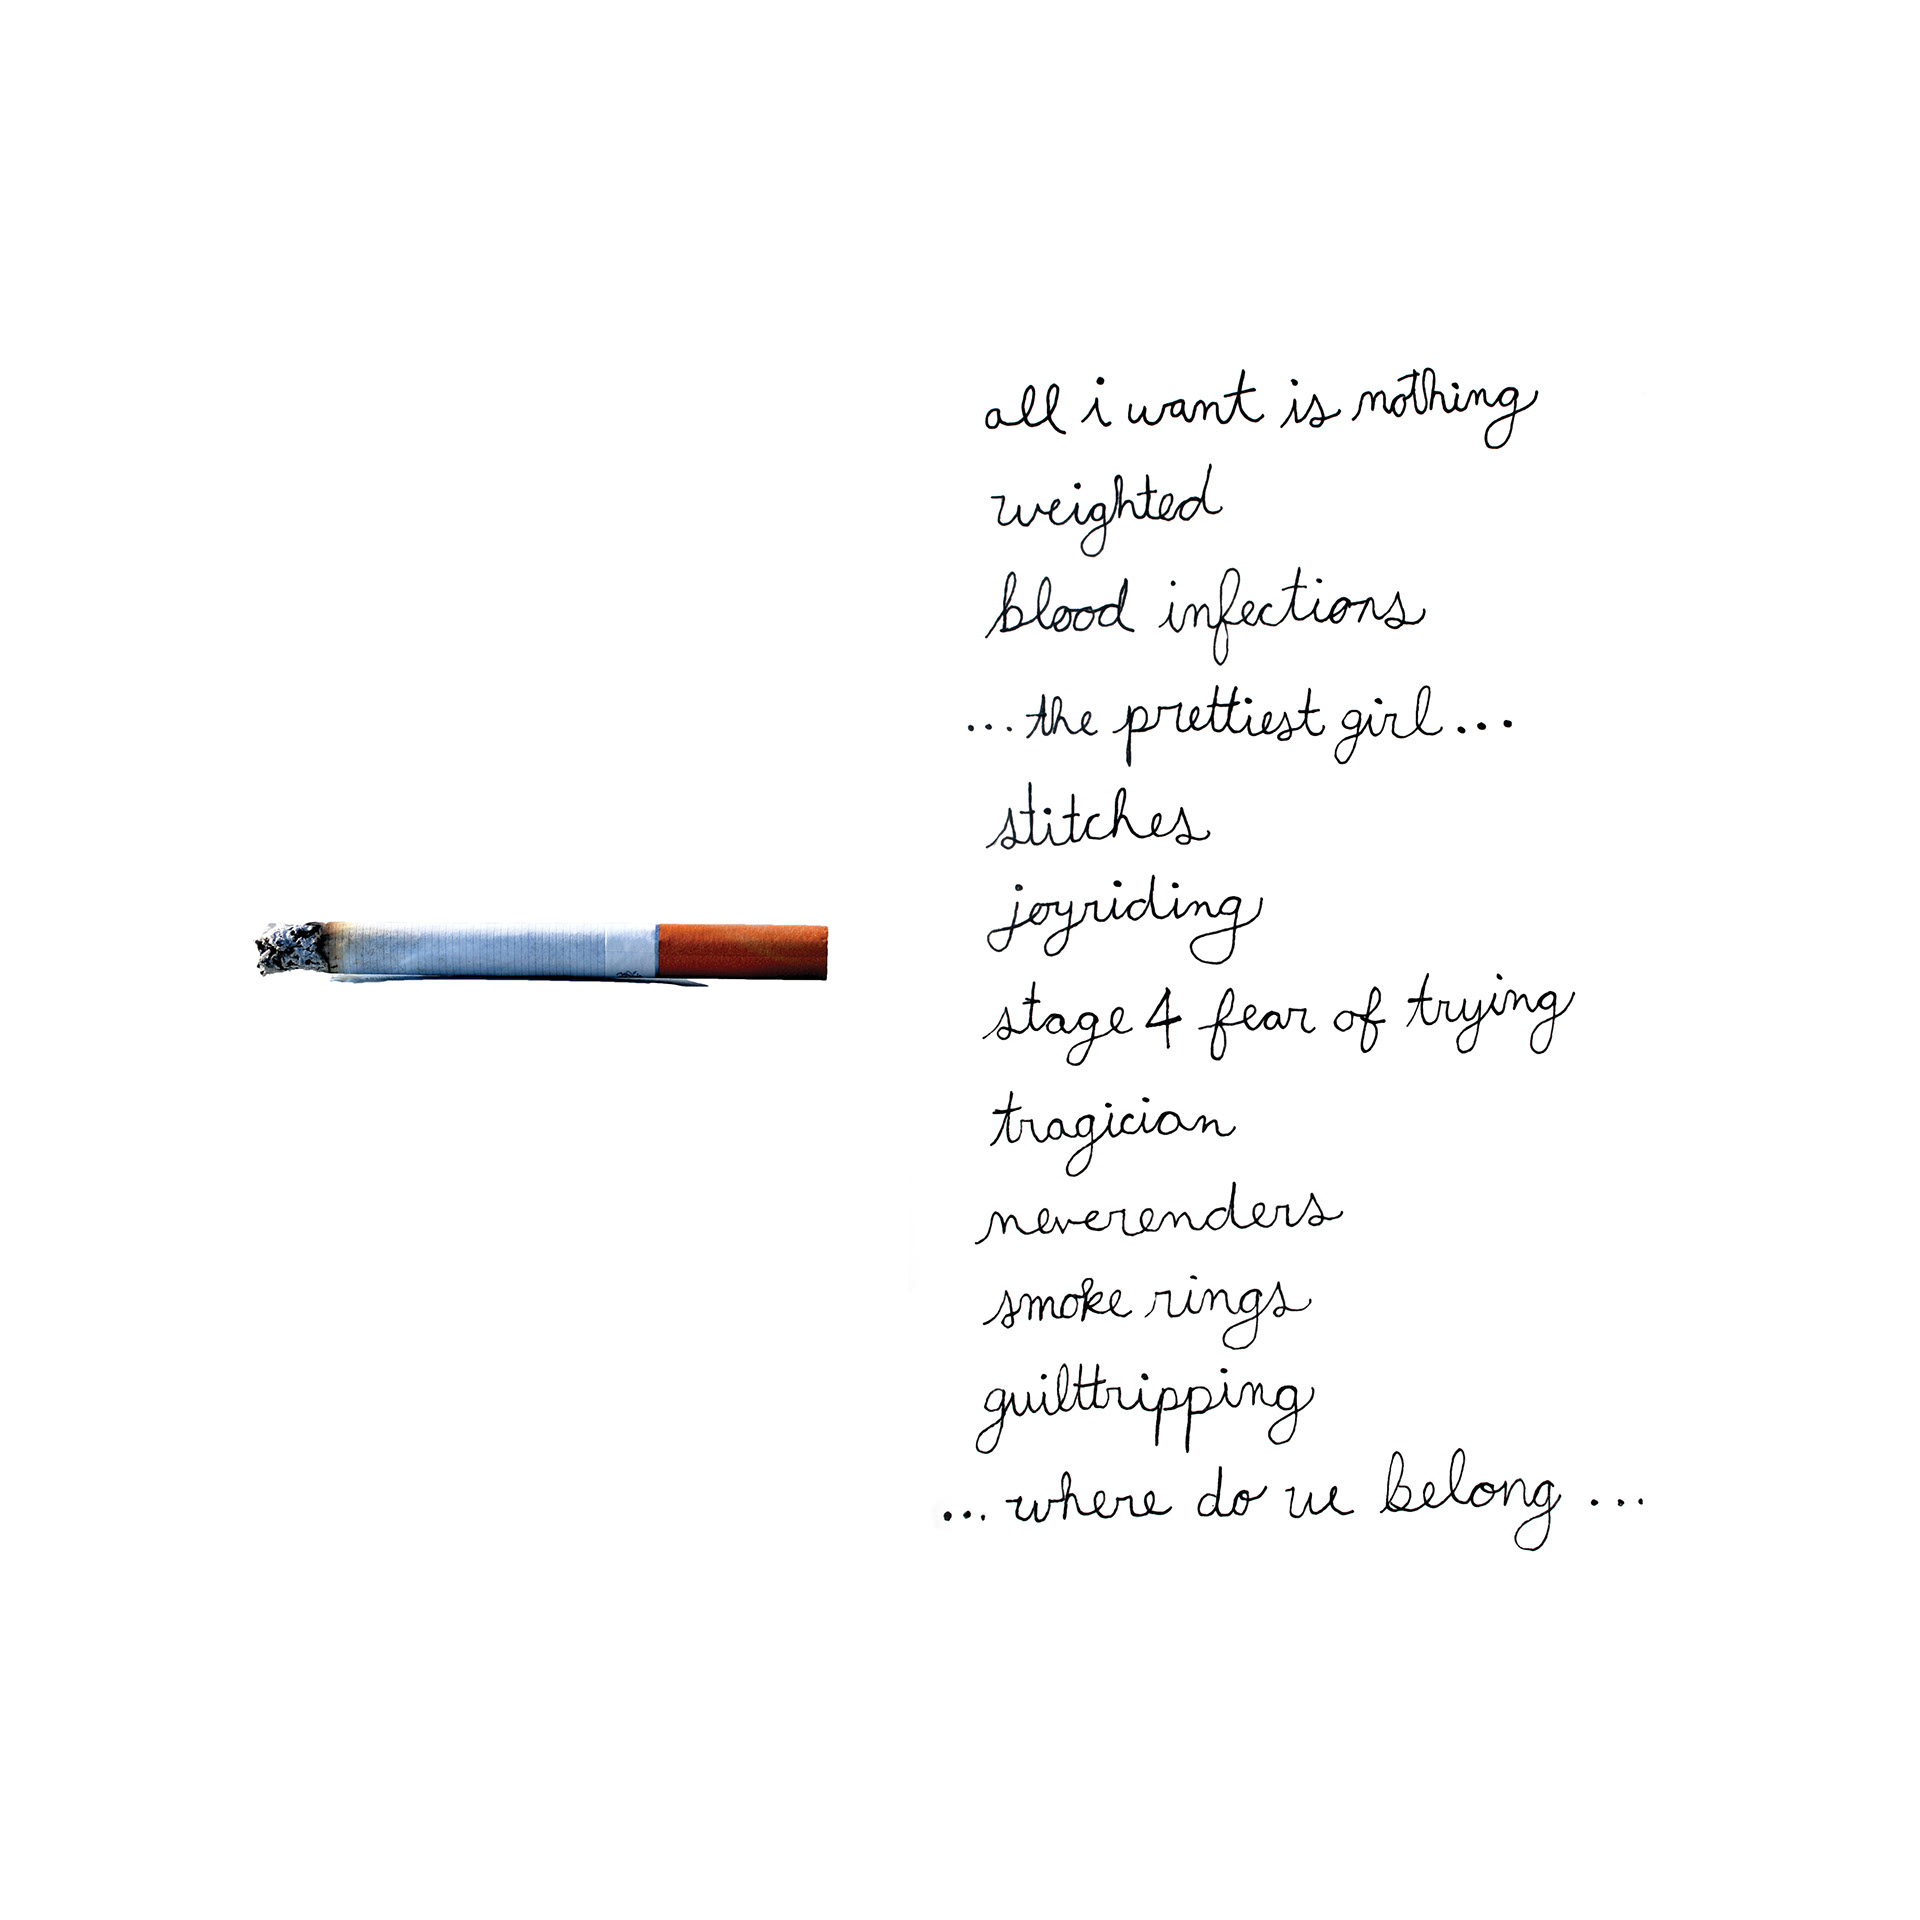 all i want is nothing
weighted
blood infections
...the prettiest girl...
stitches
joyriding
stage 4 fear of trying
tragician
neverenders
smoke rings
guilttripping
...where do we belong...